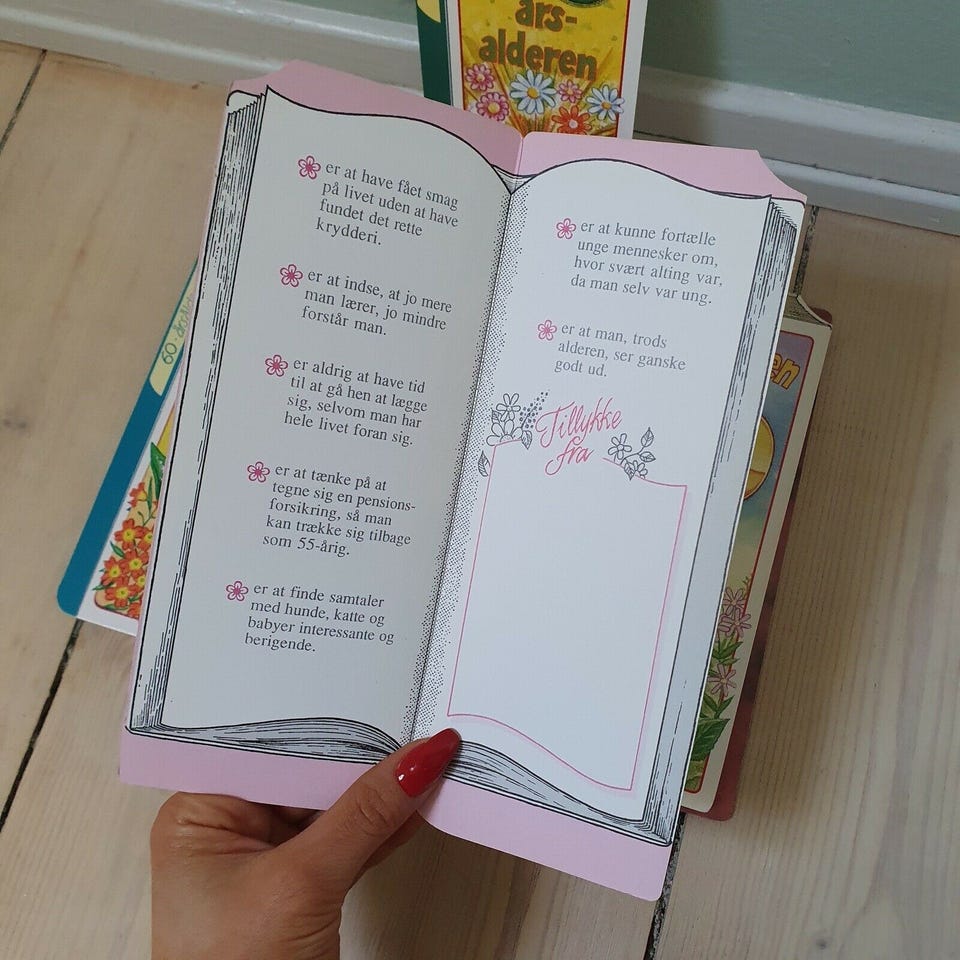 års-
alderen
er at have fået smag
på livet uden at have
fundet det rette
krydderi.
er at indse, at jo mere
man lærer, jo mindre
forstår man.
er aldrig at have tid
til at gå hen at lægge
sig, selvom man har
hele livet foran sig.
er at tænke på at
tegne sig en pensions-
forsikring, så man
kan trække sig tilbage
som 55-årig.
er at finde samtaler
med hunde, katte og
babyer interessante og
berigende.
er at kunne fortælle
unge mennesker om,
hvor svært alting var,
da man selv var ung.
er at man, trods
alderen, ser ganske
godt ud.
Tillykke
fra